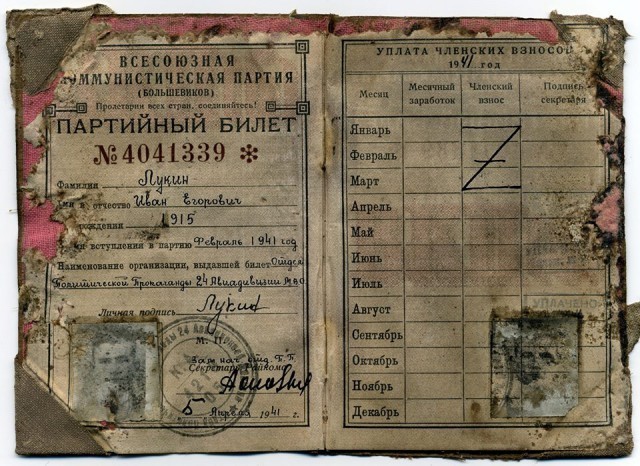 ВСЕСОЮЗНАЯ
КОММУНИСТИЧЕСКАЯ ПАРТИЯ
(БОЛЬШЕВИКОВ)
Пролетарии всех стран, соединяйтесь!
ПАРТИЙНЫЙ БИЛЕТ
№ 4041339 *
Фамилия Лукин
и отчество Иван Егорович
рождения 1915
вступления в партию Февраль 1941 год
Наименование организации, выдавшей билет Отдел
Политической Пропаганды 24 Авиадивизии
Личная подпись Лукин
М. П.
Секретарь Райкома
5 Апреля 1941 г.
УПЛАТА ЧЛЕНСКИХ ВЗНОСОВ
1941 год
Месяц
Месячный заработок
Членский взнос
Подпись секретаря
Январь
Февраль
Март
Апрель
Май
Июнь
Июль
Август
Сентябрь
Октябрь
Ноябрь
Декабрь
УПЛАЧЕНО